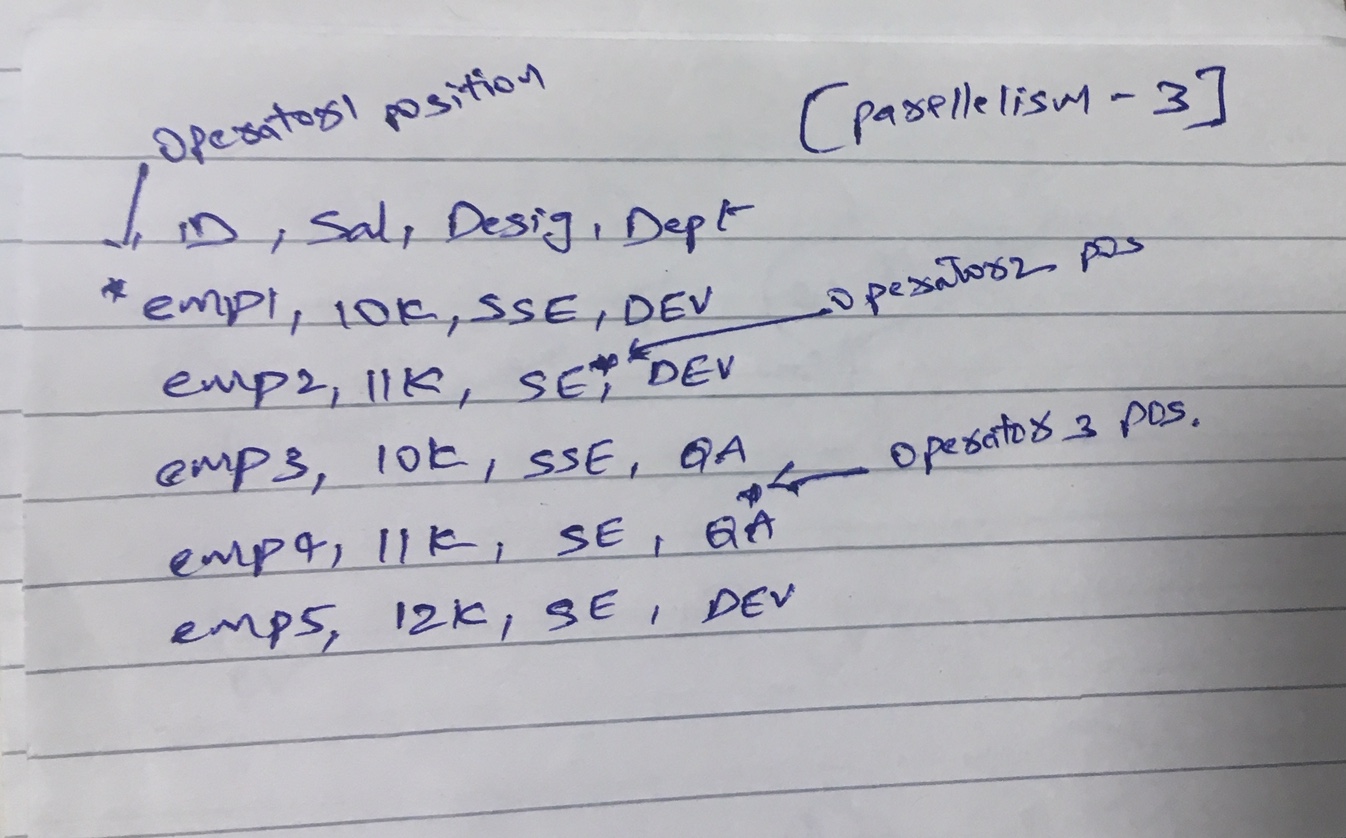 Operator1 position
[parellelism - 3]
ID, Sal, Desig, Dept
* emp1, 10K, SSE, DEV
operator2 pos
emp2, 11K, SE,* *DEV
operator 3 pos.
emp3, 10K, SSE, QA
emp4, 11K, SE, QA*
emp5, 12K, SE, DEV